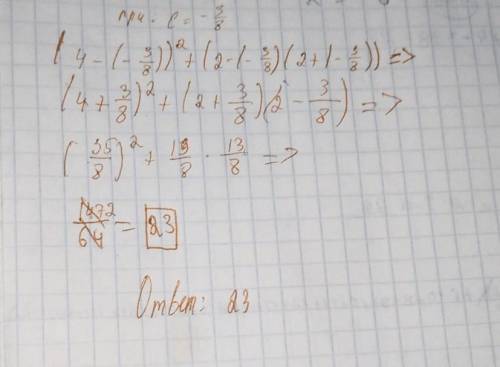 при. c = -3/8
(4 - (-3/8))² + (2 - (-3/8)(2 + (-3/8)) =>
(4 + 3/8)² + (2 + 3/8)(2 - 3/8) =>
(35/8)² + 19/8 · 13/8 =>
1472/64 = 23
Ответ: 23